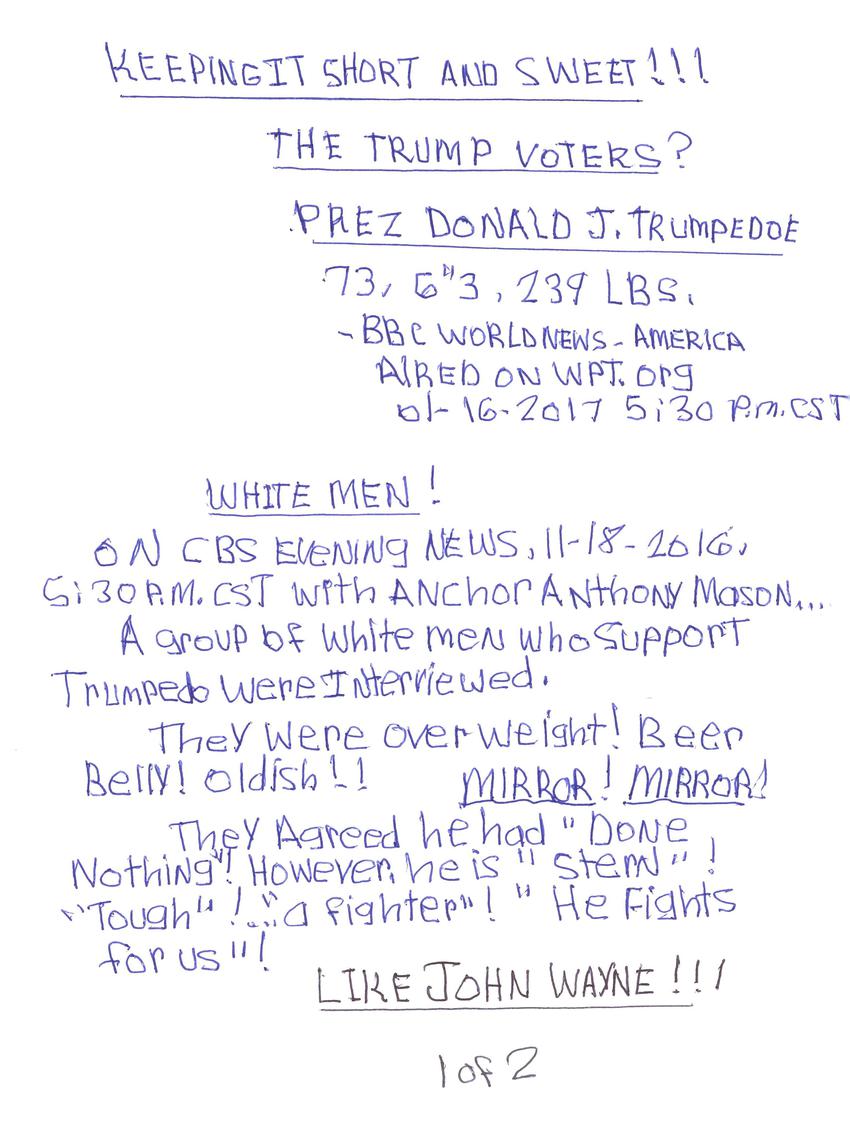 KEEPINGIT SHORT AND SWEET!!!
THE TRUMP VOTERS?
PREZ DONALD J. TRUMPEDOE
73, 6"3, 239 LBS.
- BBC WORLDNEWS - AMERICA
AIRED ON WPT.org
01-16-2017 5:30 P.m. CST
WHITE MEN!
ON CBS EVENING NEWS, 11-18-2016,
5:30 P.M. CST with ANchor Anthony Mason...
A group of white men who support
Trumpedo were Interviewed.
They were over weight! Beer
Belly! oldish!! MIRROR! MIRROR!
They Agreed he had "Done
Nothing"! However, he is "stern"!
"Tough"!..."a fighter"! "He Fights
for us"!
LIKE JOHN WAYNE!!!
1 of 2